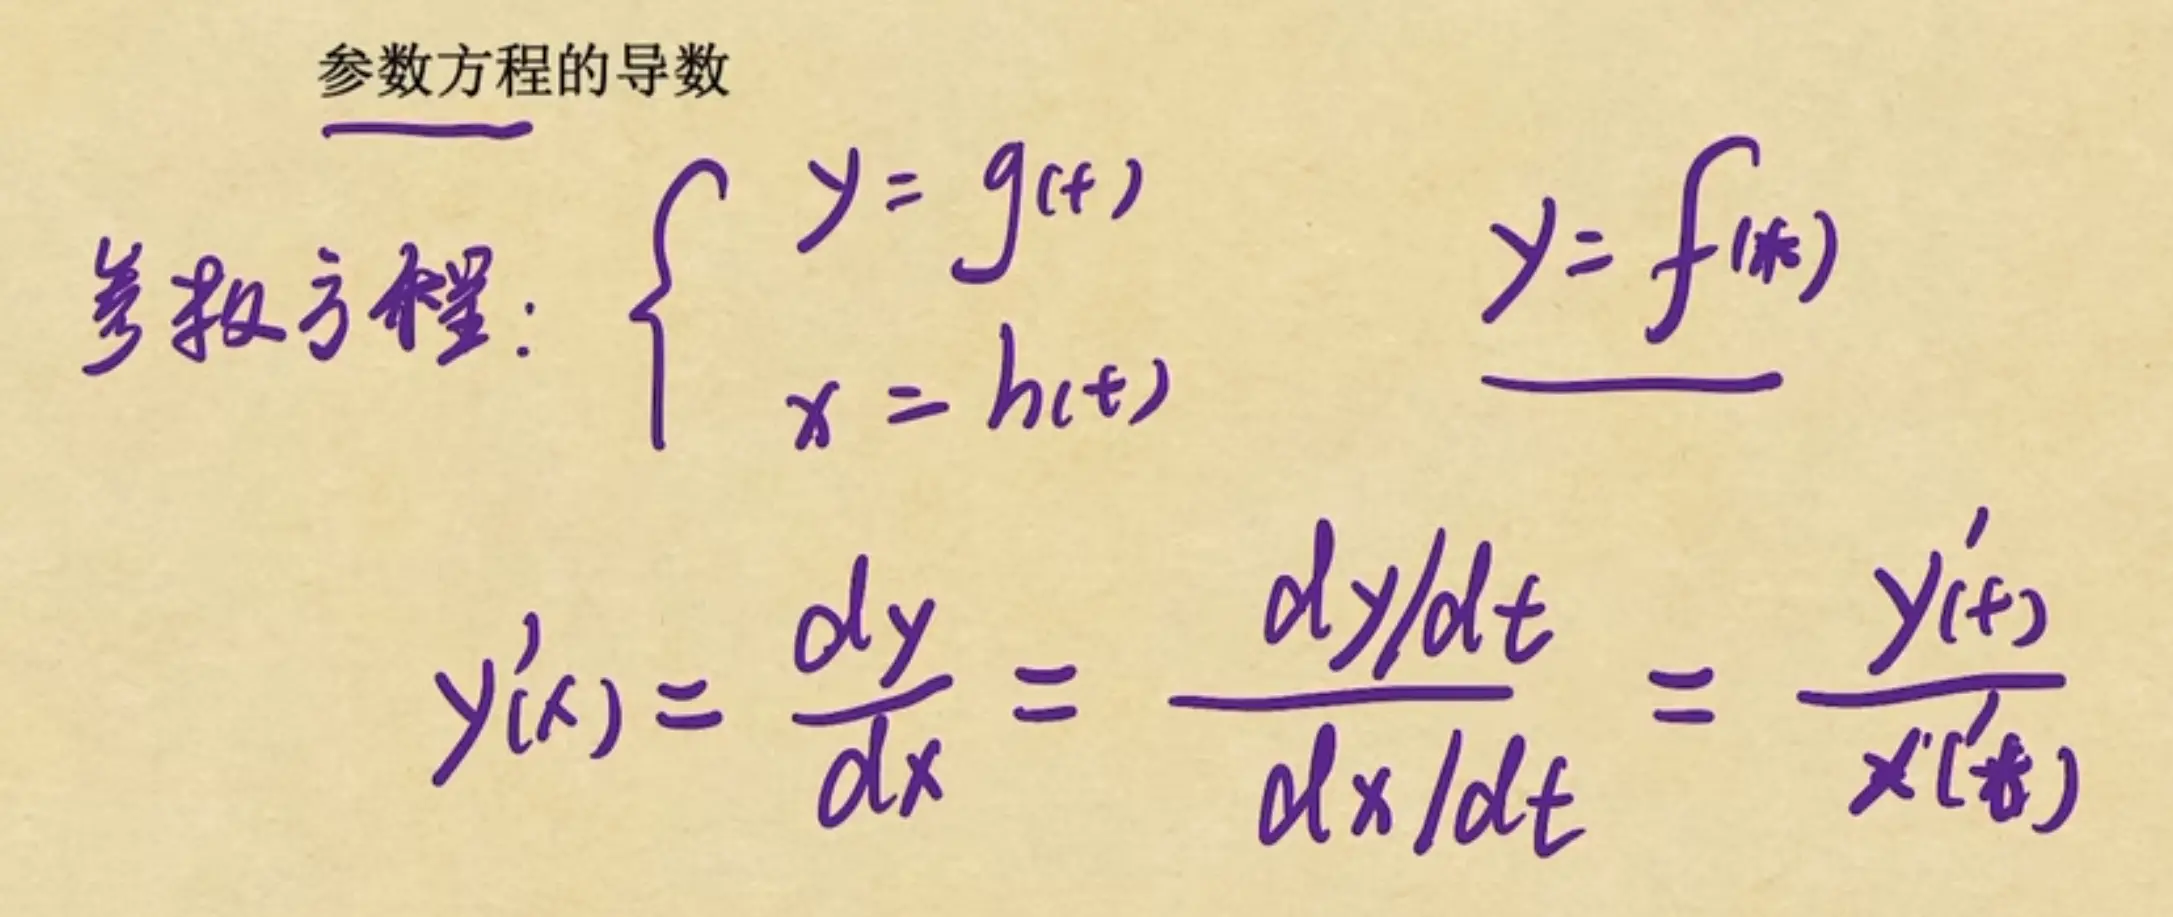 参数方程的导数
参数方程: { y = g(t) y = f(x)
x = h(t)
y'(x) = dy/dx = (dy/dt)/(dx/dt) = y'(t)/x'(t)